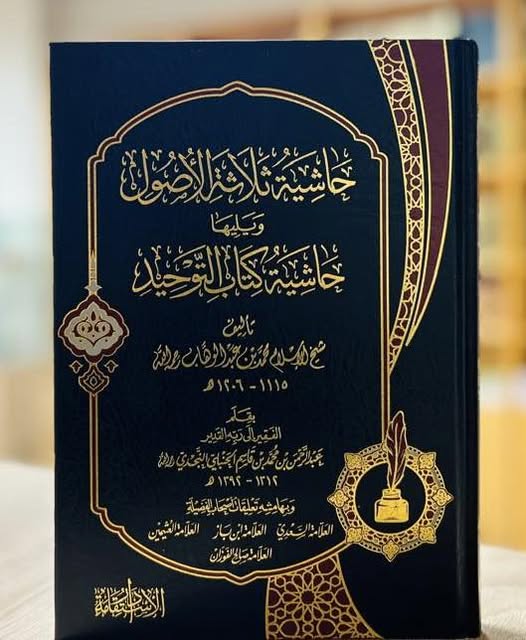 حاشية ثلاثة الأصول
ويليها
حاشية كتاب التوحيد
تأليف
شيخ الإسلام محمد بن عبد الوهاب رحمه الله
١١١٥ - ١٢٠٦ هـ
بقلم
الفقير إلى ربه القدير
عبد الرحمن بن محمد بن قاسم الحنبلي النجدي رحمه الله
١٣١٢ - ١٣٩٢ هـ
وبهامشه تعليقات أصحاب الفضيلة
العلامة السعدي العلامة ابن باز العلامة العثيمين
العلامة صالح الفوزان